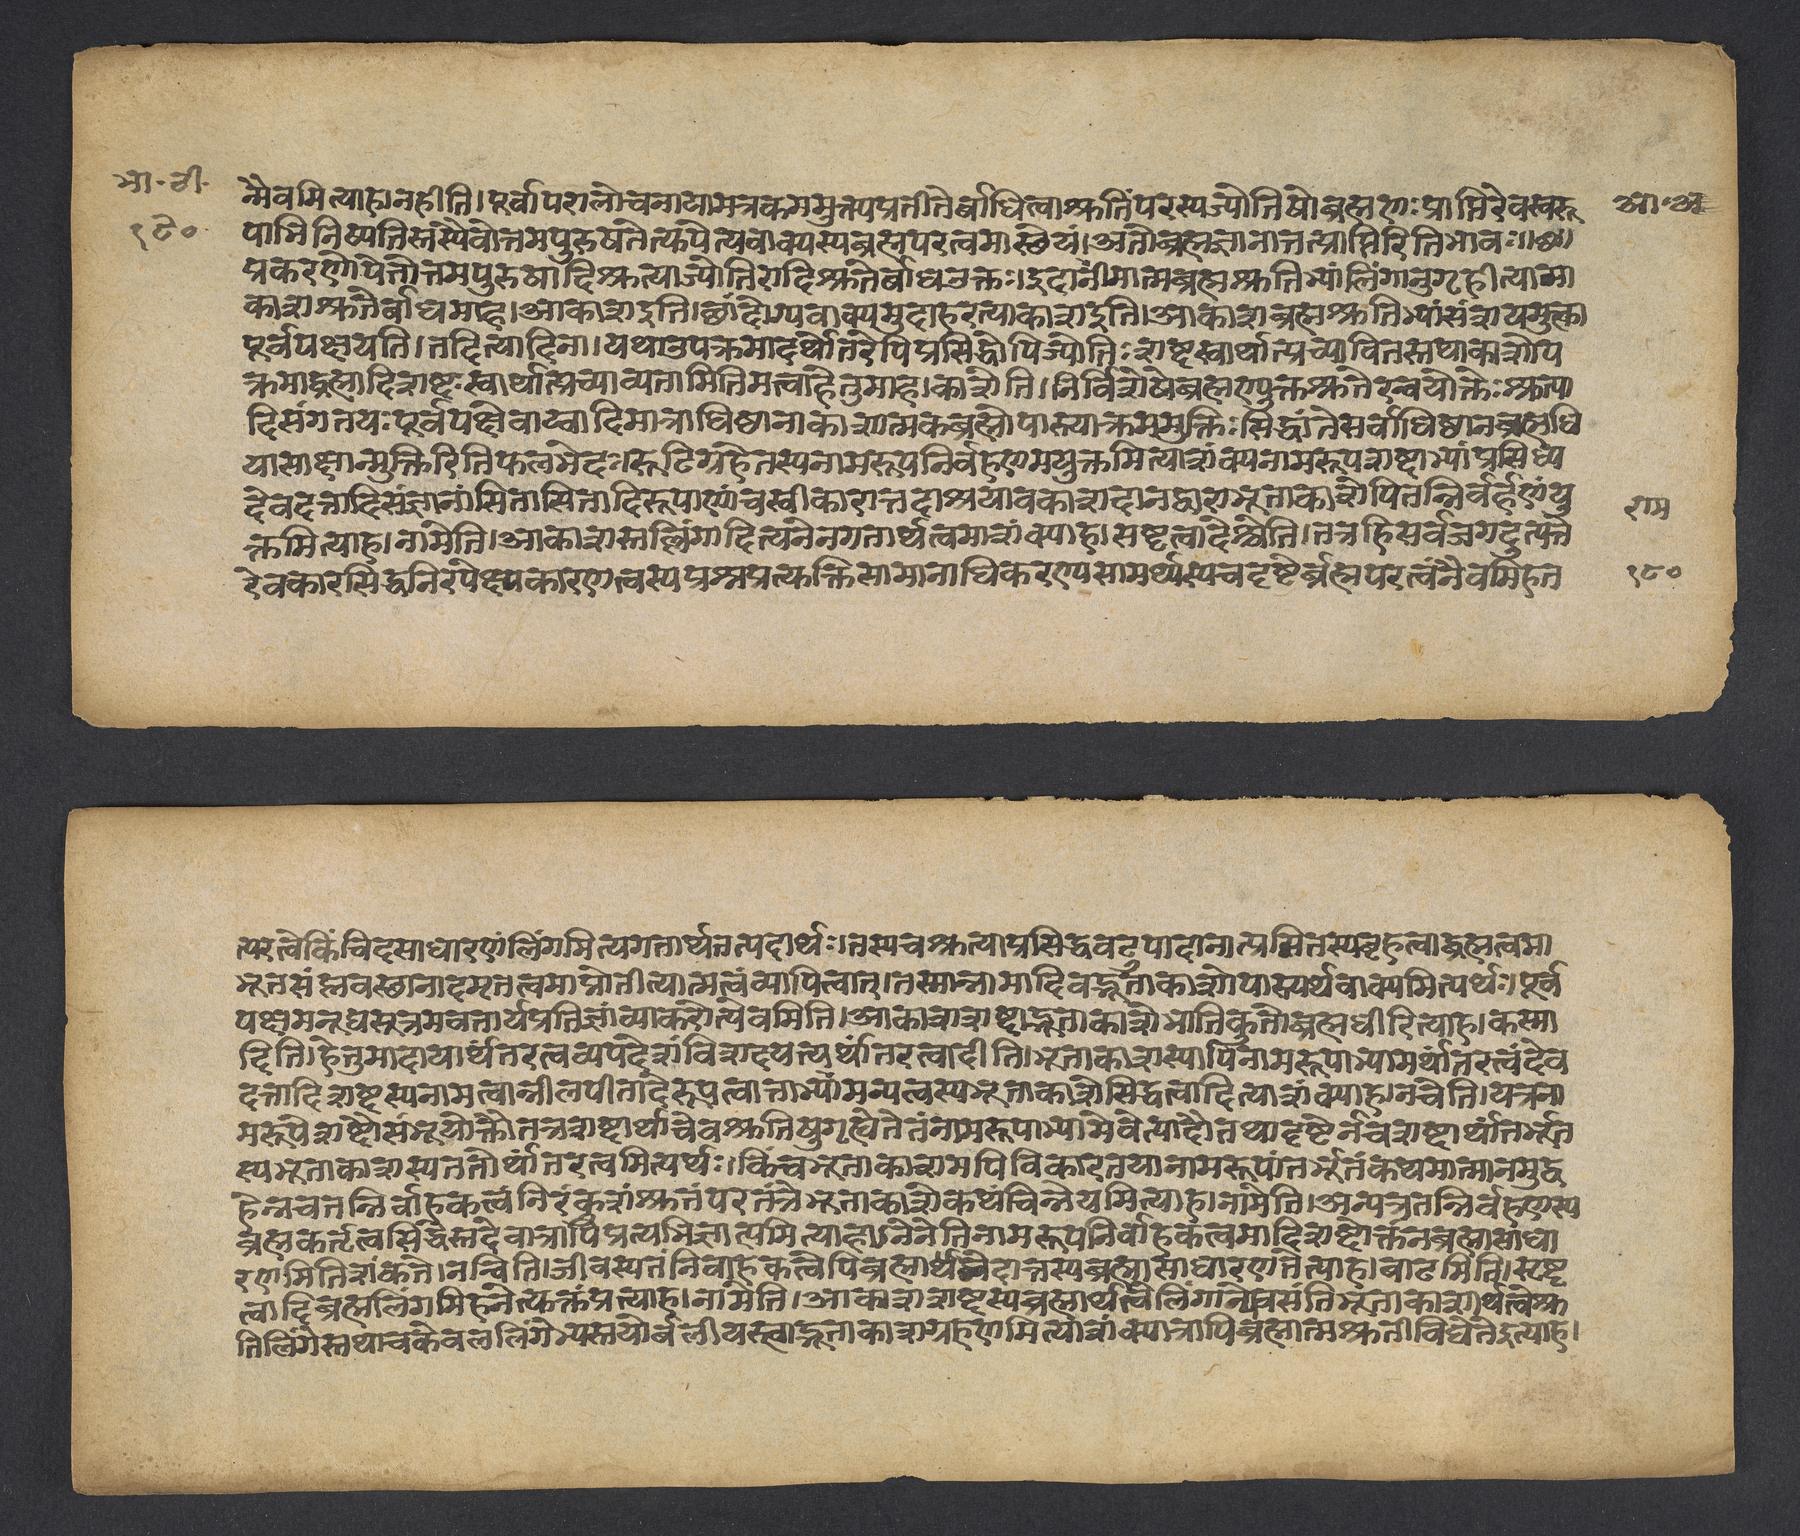 भा.टी.
१८०
न्मैवमित्याह।नहीति।पूर्वापरालोचनायामत्रकममुक्त्यप्रतीतेर्बाधित्वाश्रुतिंपरस्यज्योतिषोब्रह्मणःप्राप्तिरेवस्वरू
पाभिनिष्पत्तिस्तस्यैवोत्तमपुरुषतेत्यपेत्यवाक्यस्यब्रह्मपरत्वमास्थेयं।अतोब्रह्मज्ञानात्तत्प्राप्तिरितिभावः॥छ॥
प्रकरणोपेतोत्तमपुरुषादिश्रुत्याज्योतिरादिश्रुतेर्बाधउक्तः।इदानीमात्मब्रह्मश्रुतिभ्यांलिंगानुगृहीत्यामा
काशश्रुतेर्बाधमाह।आकाशइति।छांदोग्यवाक्यमुदाहरत्याकाशइति।आकाशब्रह्मश्रुतिभ्यांसंशयमुक्त्वा
पूर्वपक्षयति।तदित्यादिना।यथाउपक्रमादर्थांतरेपिप्रसिद्धोपिज्योतिःशब्दःस्वार्थात्प्रच्यावितस्तथाकाशोप
क्रमाद्ब्रह्मादिशब्दःस्वार्थात्प्रच्याव्यतामितिमत्वाहेतुमाह।काशेति।निर्विशेषेब्रह्मण्युक्तश्रुतेरन्वयोक्तेःश्रुत्या
दिसंगतयःपूर्वपक्षेवाय्वादिमात्राधिष्ठानाकाशात्मकब्रह्मोपास्त्याक्रममुक्तिःसिद्धांतेसर्वाधिष्ठानब्रह्मधि
यासाक्षान्मुक्तिरितिफलभेदः।रूढिग्रहेतस्यनामरूपनिर्वहणमयुक्तमित्याशंक्यनामरूपशब्दाभ्यांप्रसिध्य
देवदत्तादिसंज्ञानांसितासितादिरूपाणांचस्वीकारात्तदाश्रयावकाशदानद्वाराभूताकाशेपितन्निर्वहणंयु
क्तमित्याह।नामेति।आकाशस्तल्लिंगादित्यनेनगतार्थत्वमाशंक्याह।स्रष्टृत्वादेश्चेति।तत्रहिसर्वजगदुत्पत्ते
रेवकारसिद्धनिरपेक्ष्यकारणत्वस्यप्रश्नप्रत्युक्तिसामानाधिकरण्यसामर्थ्यस्यचदृष्टेर्ब्रह्मपरत्वंनैवमिहत
राम
१८०
त्परत्वेकिंचिदसाधारणंलिंगमित्यगतार्थतत्पदार्थः।तस्यचश्रुत्याप्रसिद्धवदुपादानात्प्रसितस्यबृहत्वाद्ब्रह्मत्वमा
भूतसंप्लवस्थानादमृतत्वमाप्नोतीत्यात्मत्वंव्यापित्वात्।तस्मान्नामादिवद्भूताकाशोपास्त्यर्थवाक्यमित्यर्थः।पूर्व
पक्षमनूद्यसूत्रमवतार्यप्रतिज्ञांव्याकरोत्येवमिति।आकाशशब्दाद्भूताकाशोभातिकुतोब्रह्मधीरित्याह।कस्मा
दिति।हेतुमादाया।र्थांतरत्वव्यपदेशंविशदयत्यर्थांतरत्वादीति।भूताकाशस्यापिनामरूपाभ्यामर्थांतरत्वंदेव
दत्तादिशब्दस्यनामत्वान्नीलपीतादेरूपत्वात्ताभ्यामन्यत्वस्यभूताकाशेसिद्धत्वादित्याशंक्याह।नचेति।यत्रना
मरूपेशब्दौसंभूयोक्तौतत्रशब्दार्थावेवश्रुतिषुगृह्येतेतंनामरूपाभ्यामेवेत्यादौतथादृष्टेर्नचशब्दार्थांतर्भूत
स्यभूताकाशस्यततोर्थांतरत्वमित्यर्थः।किंचभूताकाशमपिविकारतयानामरूपांतर्भूतंकथमात्मानमुद्व
हेन्नचतन्निर्वाहकत्वंनिरंकुशंश्रुतंपरतंत्रेभूताकाशेकथंचिन्नेयमित्याह।नामेति।अन्यत्रतन्निर्वहणस्य
ब्रह्मकर्तृत्वसिद्धेस्तदेवात्रापिप्रत्यभिज्ञाप्यमित्याह।नेनेतिनामरूपनिर्वाहकत्वमादिशब्दोक्तंनब्रह्मासाधा
रणमितिशंकते।नन्विति।जीवस्यतन्निर्वाहकत्वेपिब्रह्मार्थभेदात्तस्यब्रह्मासाधारणतेत्याह।बाढमिति।स्रष्टृ
त्वादिब्रह्मलिंगमिहनेत्युक्तंप्रत्याह।नामेति।आकाशशब्दस्यब्रह्मार्थत्वेलिंगान्येवसंतिभूताकाशार्थत्वेश्रु
तिर्लिंगेस्तथाचकेवललिंगेभ्यस्तयोर्बलीयस्त्वाद्भूताकाशग्रहणमित्याशंक्यात्रापिब्रह्मात्मश्रुतीविद्येतेइत्याह।